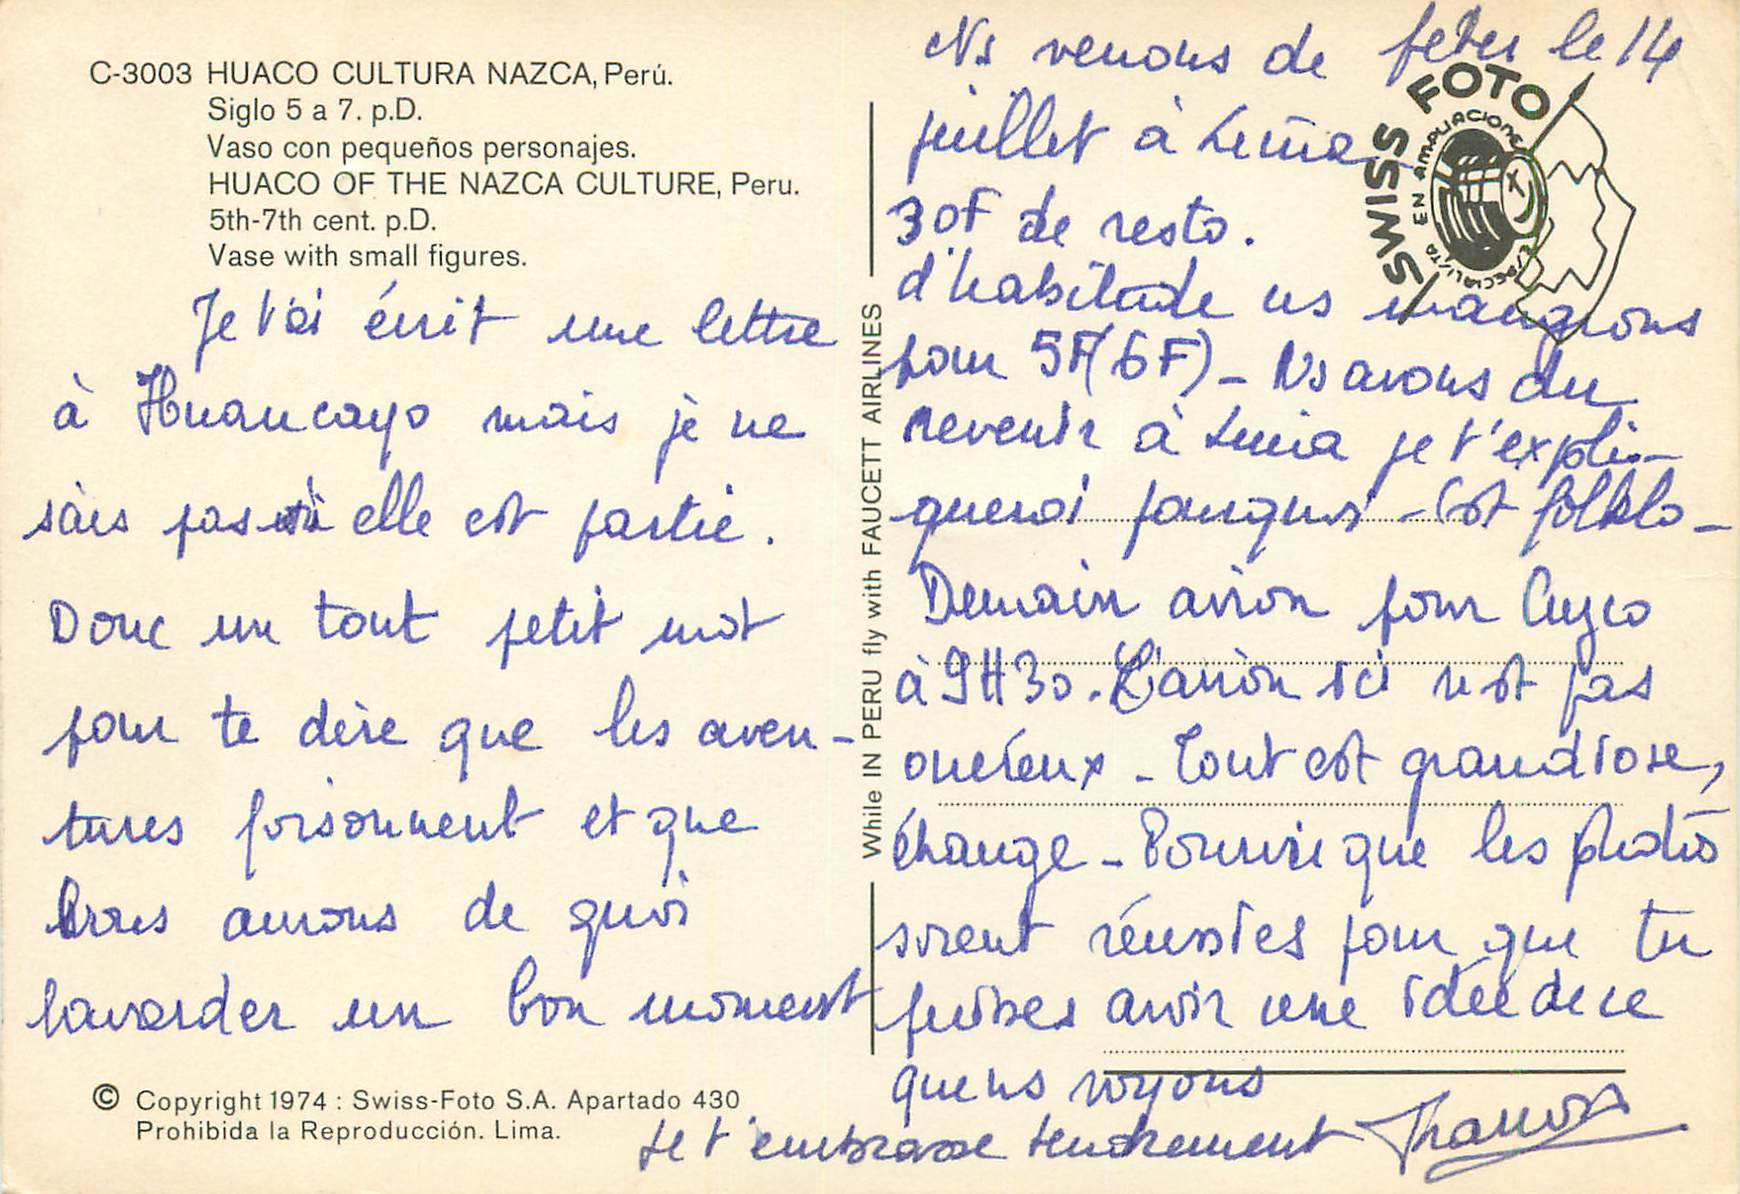 C-3003 HUACO CULTURA NAZCA, Perú.
Siglo 5 a 7. p.D.
Vaso con pequeños personajes.
HUACO OF THE NAZCA CULTURE, Peru.
5th-7th cent. p.D.
Vase with small figures.
Je t'ai écrit une lettre
à Huancayo mais je ne
sais pas si elle est partie.
Donc un tout petit mot
pour te dire que les aven-
tures foisonnent et que
nous aurons de quoi
bavarder un bon moment
© Copyright 1974 : Swiss-Foto S.A. Apartado 430
Prohibida la Reproducción. Lima.
While IN PERU fly with FAUCETT AIRLINES
SWISS FOTO
ESPECIALISTA EN AMPLIACIONES
Ns venons de fêter le 14
juillet à Lima
30F de resto.
d'habitude ns mangions
pour 5F (6F) - Ns avons du
revenir à Lima je t'expli-
querai pourquoi - C'est folklo -
Demain avion pour Cuzco
à 9H30. L'avion ici n'est pas
onéreux - Tout est grandiose,
étrange - Pourvu que les photos
soient réussies pour que tu
puisses avoir une idée de ce
que ns voyons
Je t'embrasse tendrement